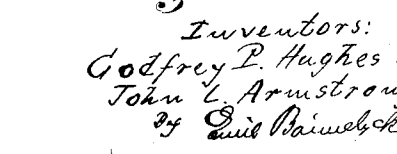 Inventors:
Godfrey P. Hughes
John L. Armstron
By Emil